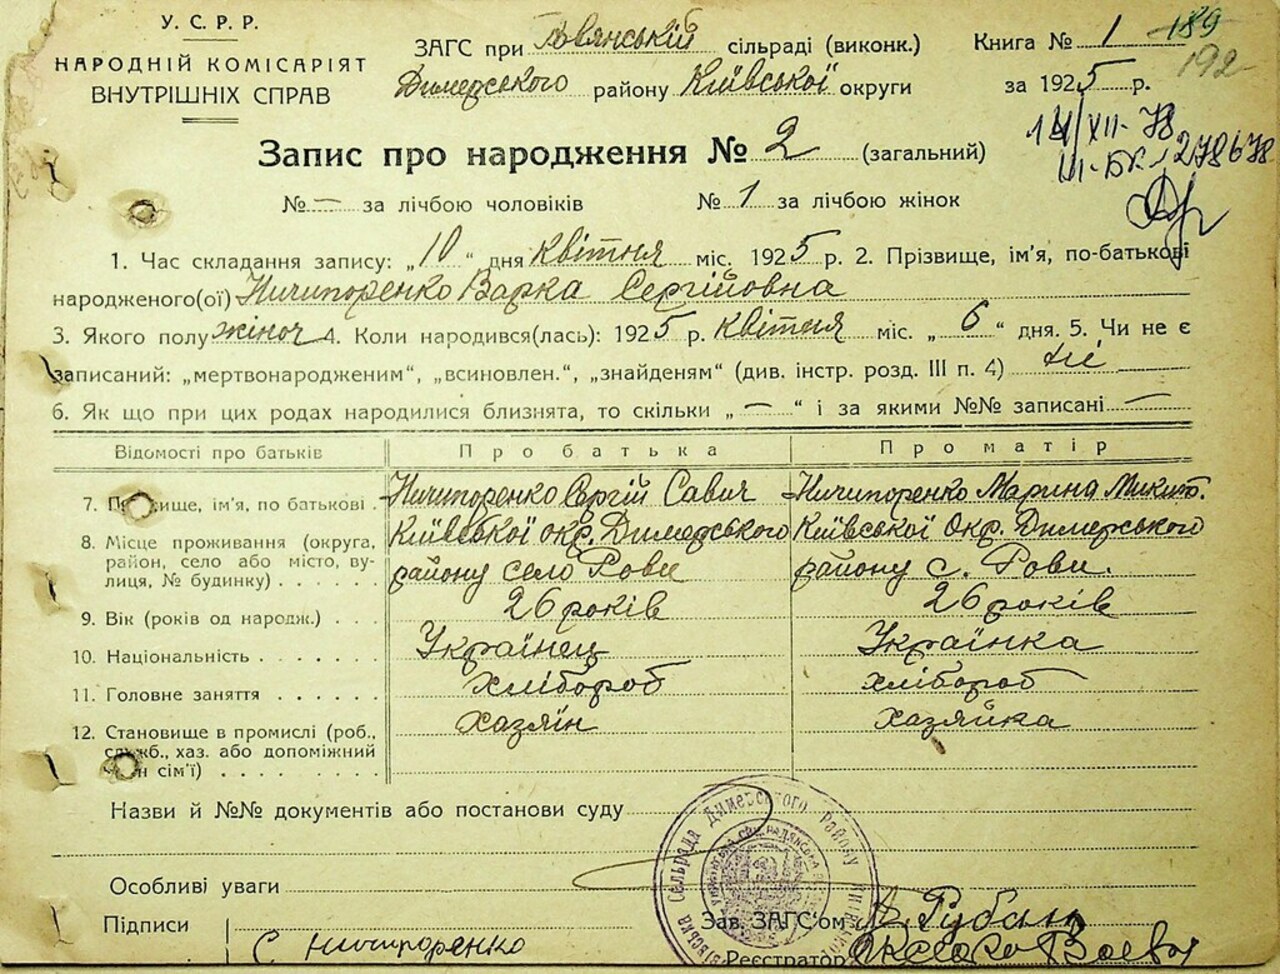 У. С. Р. Р.
НАРОДНІЙ КОМІСАРІЯТ
ВНУТРІШНІХ СПРАВ
ЗАГС при сільраді (виконк.)
Димерського району Київської округи
Книга № 1
189
192
за 1925 р.
Запис про народження № 2 (загальний)
14/XII-78
III-БК 278678
№ — за лічбою чоловіків № 1 за лічбою жінок
1. Час складання запису: „10“ дня квітня міс. 1925 р. 2. Прізвище, ім'я, по-батькові
народженого(ої) Ничипоренко Варка Сергійовна
3. Якого полу жіноч 4. Коли народився(лась): 1925 р. квітня міс. „6“ дня. 5. Чи не є
записаний: „мертвонародженим“, „всиновлен.“, „знайденям“ (див. інстр. розд. III п. 4) ні
6. Як що при цих родах народилися близнята, то скільки „—“ і за якими №№ записані —
Відомості про батьків Про батька Про матір
7. Прізвище, ім'я, по батькові . Ничипоренко Сергій Савич Ничипоренко Марина Микит.
8. Місце проживання (округа, район, село або місто, вулиця, № будинку) . . . . . . Київської окр. Димерського району село Рови Київської Окр. Димерського району с. Рови.
9. Вік (років од народж.) . . . 26 років 26 років
10. Національність . . . . . . Українец Українка
11. Головне заняття . . . . . . хлібороб хлібороб
12. Становище в промислі (роб., служб., хаз. або допоміжний член сім'ї) . . . . . . . . хазяїн хазяйка
Назви й №№ документів або постанови суду
Особливі уваги
Підписи
С Ничипоренко
Зав. ЗАГС'ом Рубан
Реєстратор
сельрада Димерського району